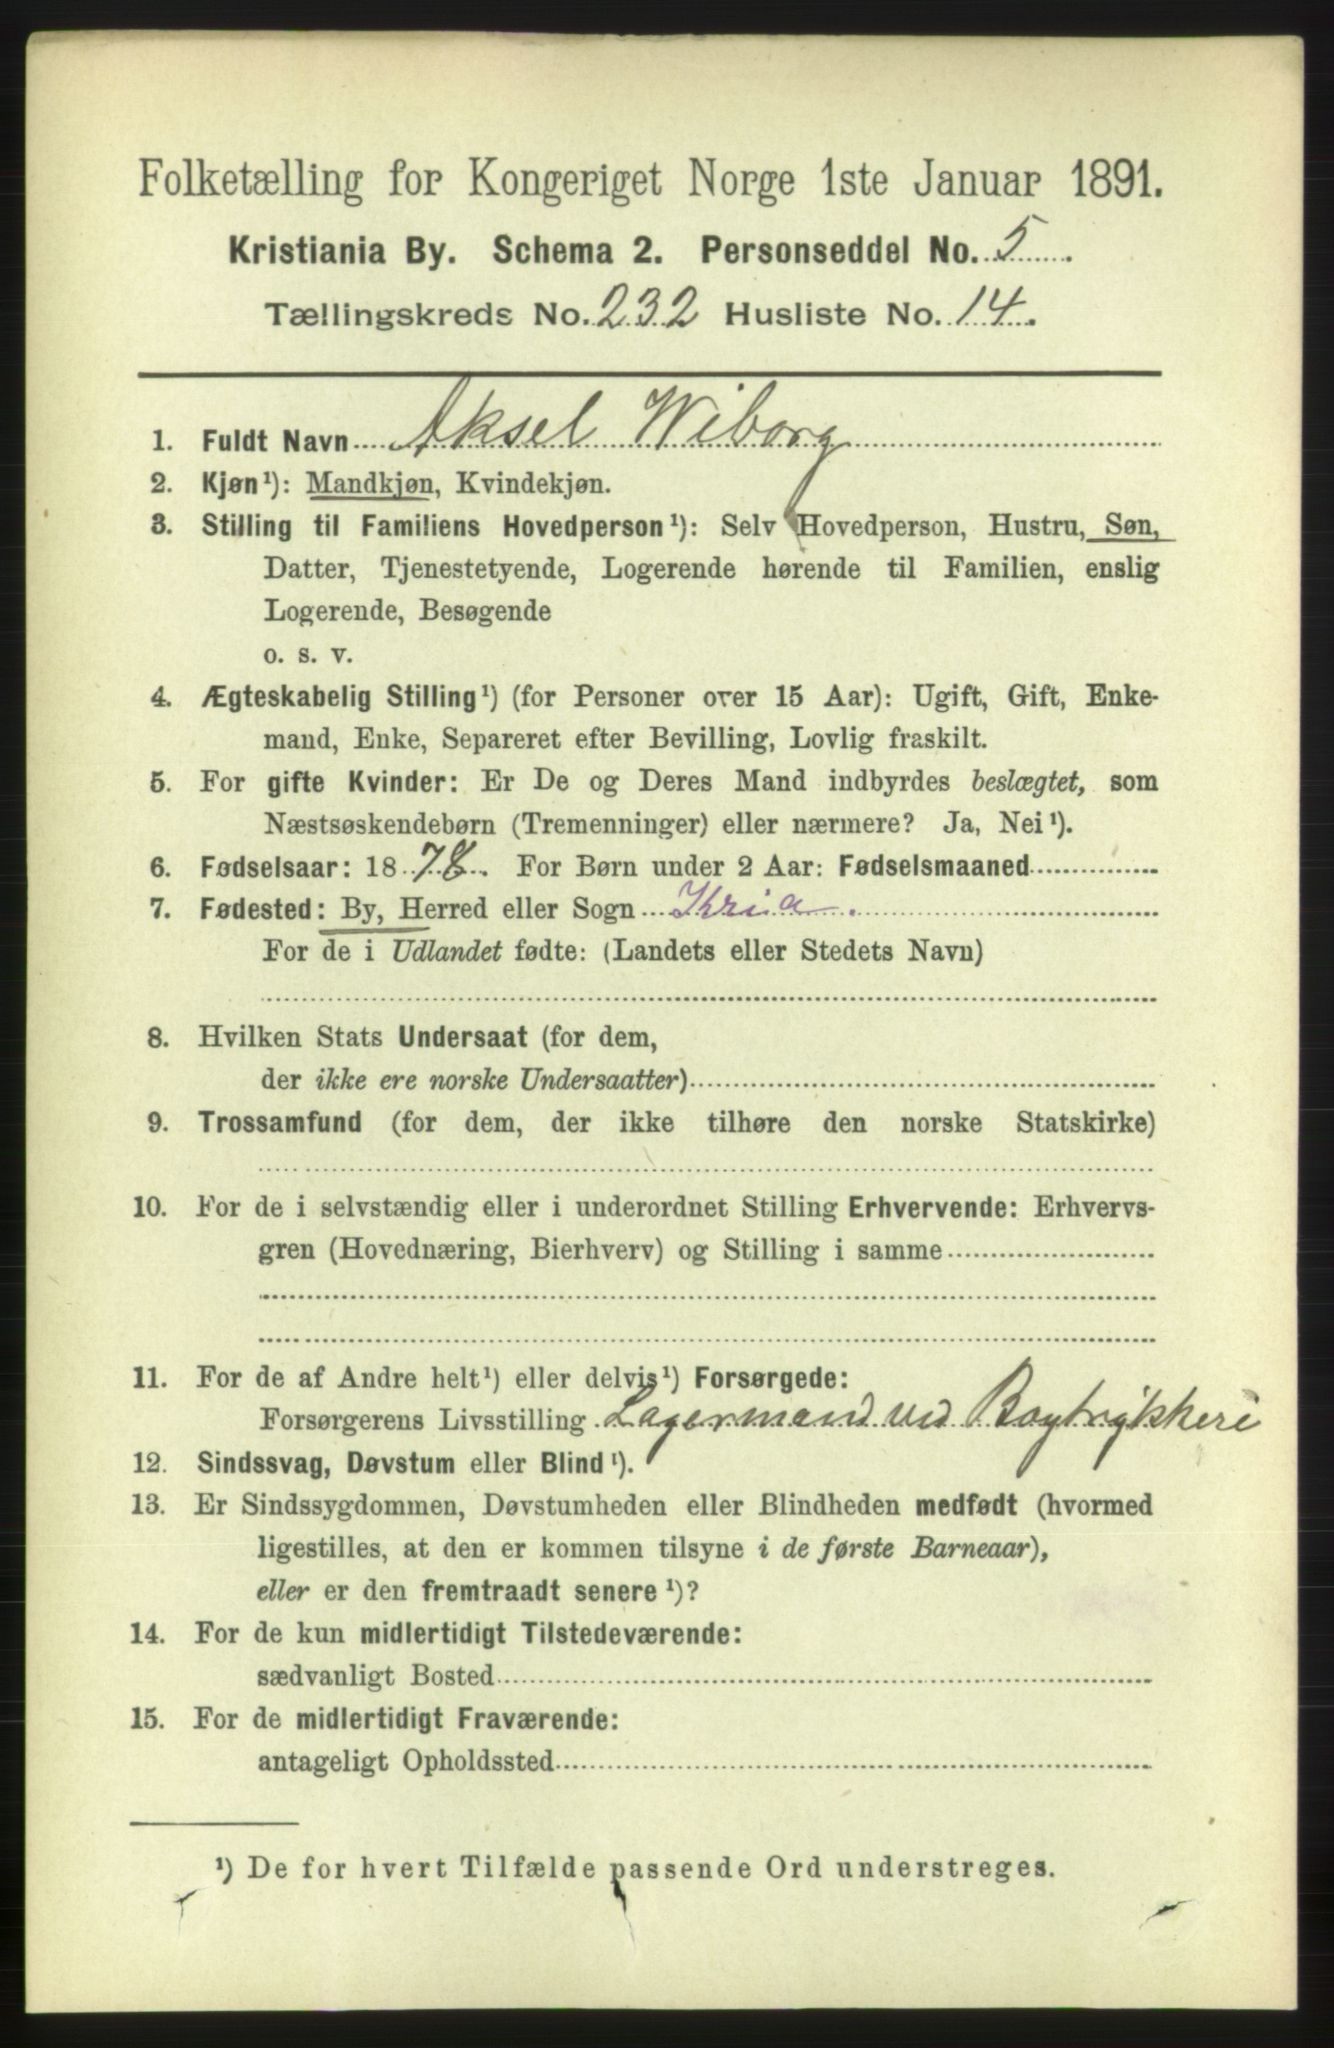 Folketælling for Kongeriget Norge 1ste Januar 1891.
Kristiania By. Schema 2. Personseddel No. 5
Tællingskreds No. 232 Husliste No. 14.
1. Fuldt Navn Aksel Wiborg
2. Kjøn¹): Mandkjøn, Kvindekjøn.
3. Stilling til Familiens Hovedperson¹): Selv Hovedperson, Hustru, Søn,
Datter, Tjenestetyende, Logerende hørende til Familien, enslig
Logerende, Besøgende
o. s. v.
4. Ægteskabelig Stilling¹) (for Personer over 15 Aar): Ugift, Gift, Enke-
mand, Enke, Separeret efter Bevilling, Lovlig fraskilt.
5. For gifte Kvinder: Er De og Deres Mand indbyrdes beslægtet, som
Næstsøskendebørn (Tremenninger) eller nærmere? Ja, Nei¹).
6. Fødselsaar: 1878. For Børn under 2 Aar: Fødselsmaaned
7. Fødested: By, Herred eller Sogn Kria.
For de i Udlandet fødte: (Landets eller Stedets Navn)
8. Hvilken Stats Undersaat (for dem,
der ikke ere norske Undersaatter)
9. Trossamfund (for dem, der ikke tilhøre den norske Statskirke)
10. For de i selvstændig eller i underordnet Stilling Erhvervende: Erhvervs-
gren (Hovednæring, Bierhverv) og Stilling i samme
11. For de af Andre helt¹) eller delvis¹) Forsørgede:
Forsørgerens Livsstilling Lagermand ved Bogtrykkeri
12. Sindssvag, Døvstum eller Blind¹).
13. Er Sindssygdommen, Døvstumheden eller Blindheden medfødt (hvormed
ligestilles, at den er kommen tilsyne i de første Barneaar),
eller er den fremtraadt senere¹)?
14. For de kun midlertidigt Tilstedeværende:
sædvanligt Bosted
15. For de midlertidigt Fraværende:
antageligt Opholdssted
¹) De for hvert Tilfælde passende Ord understreges.